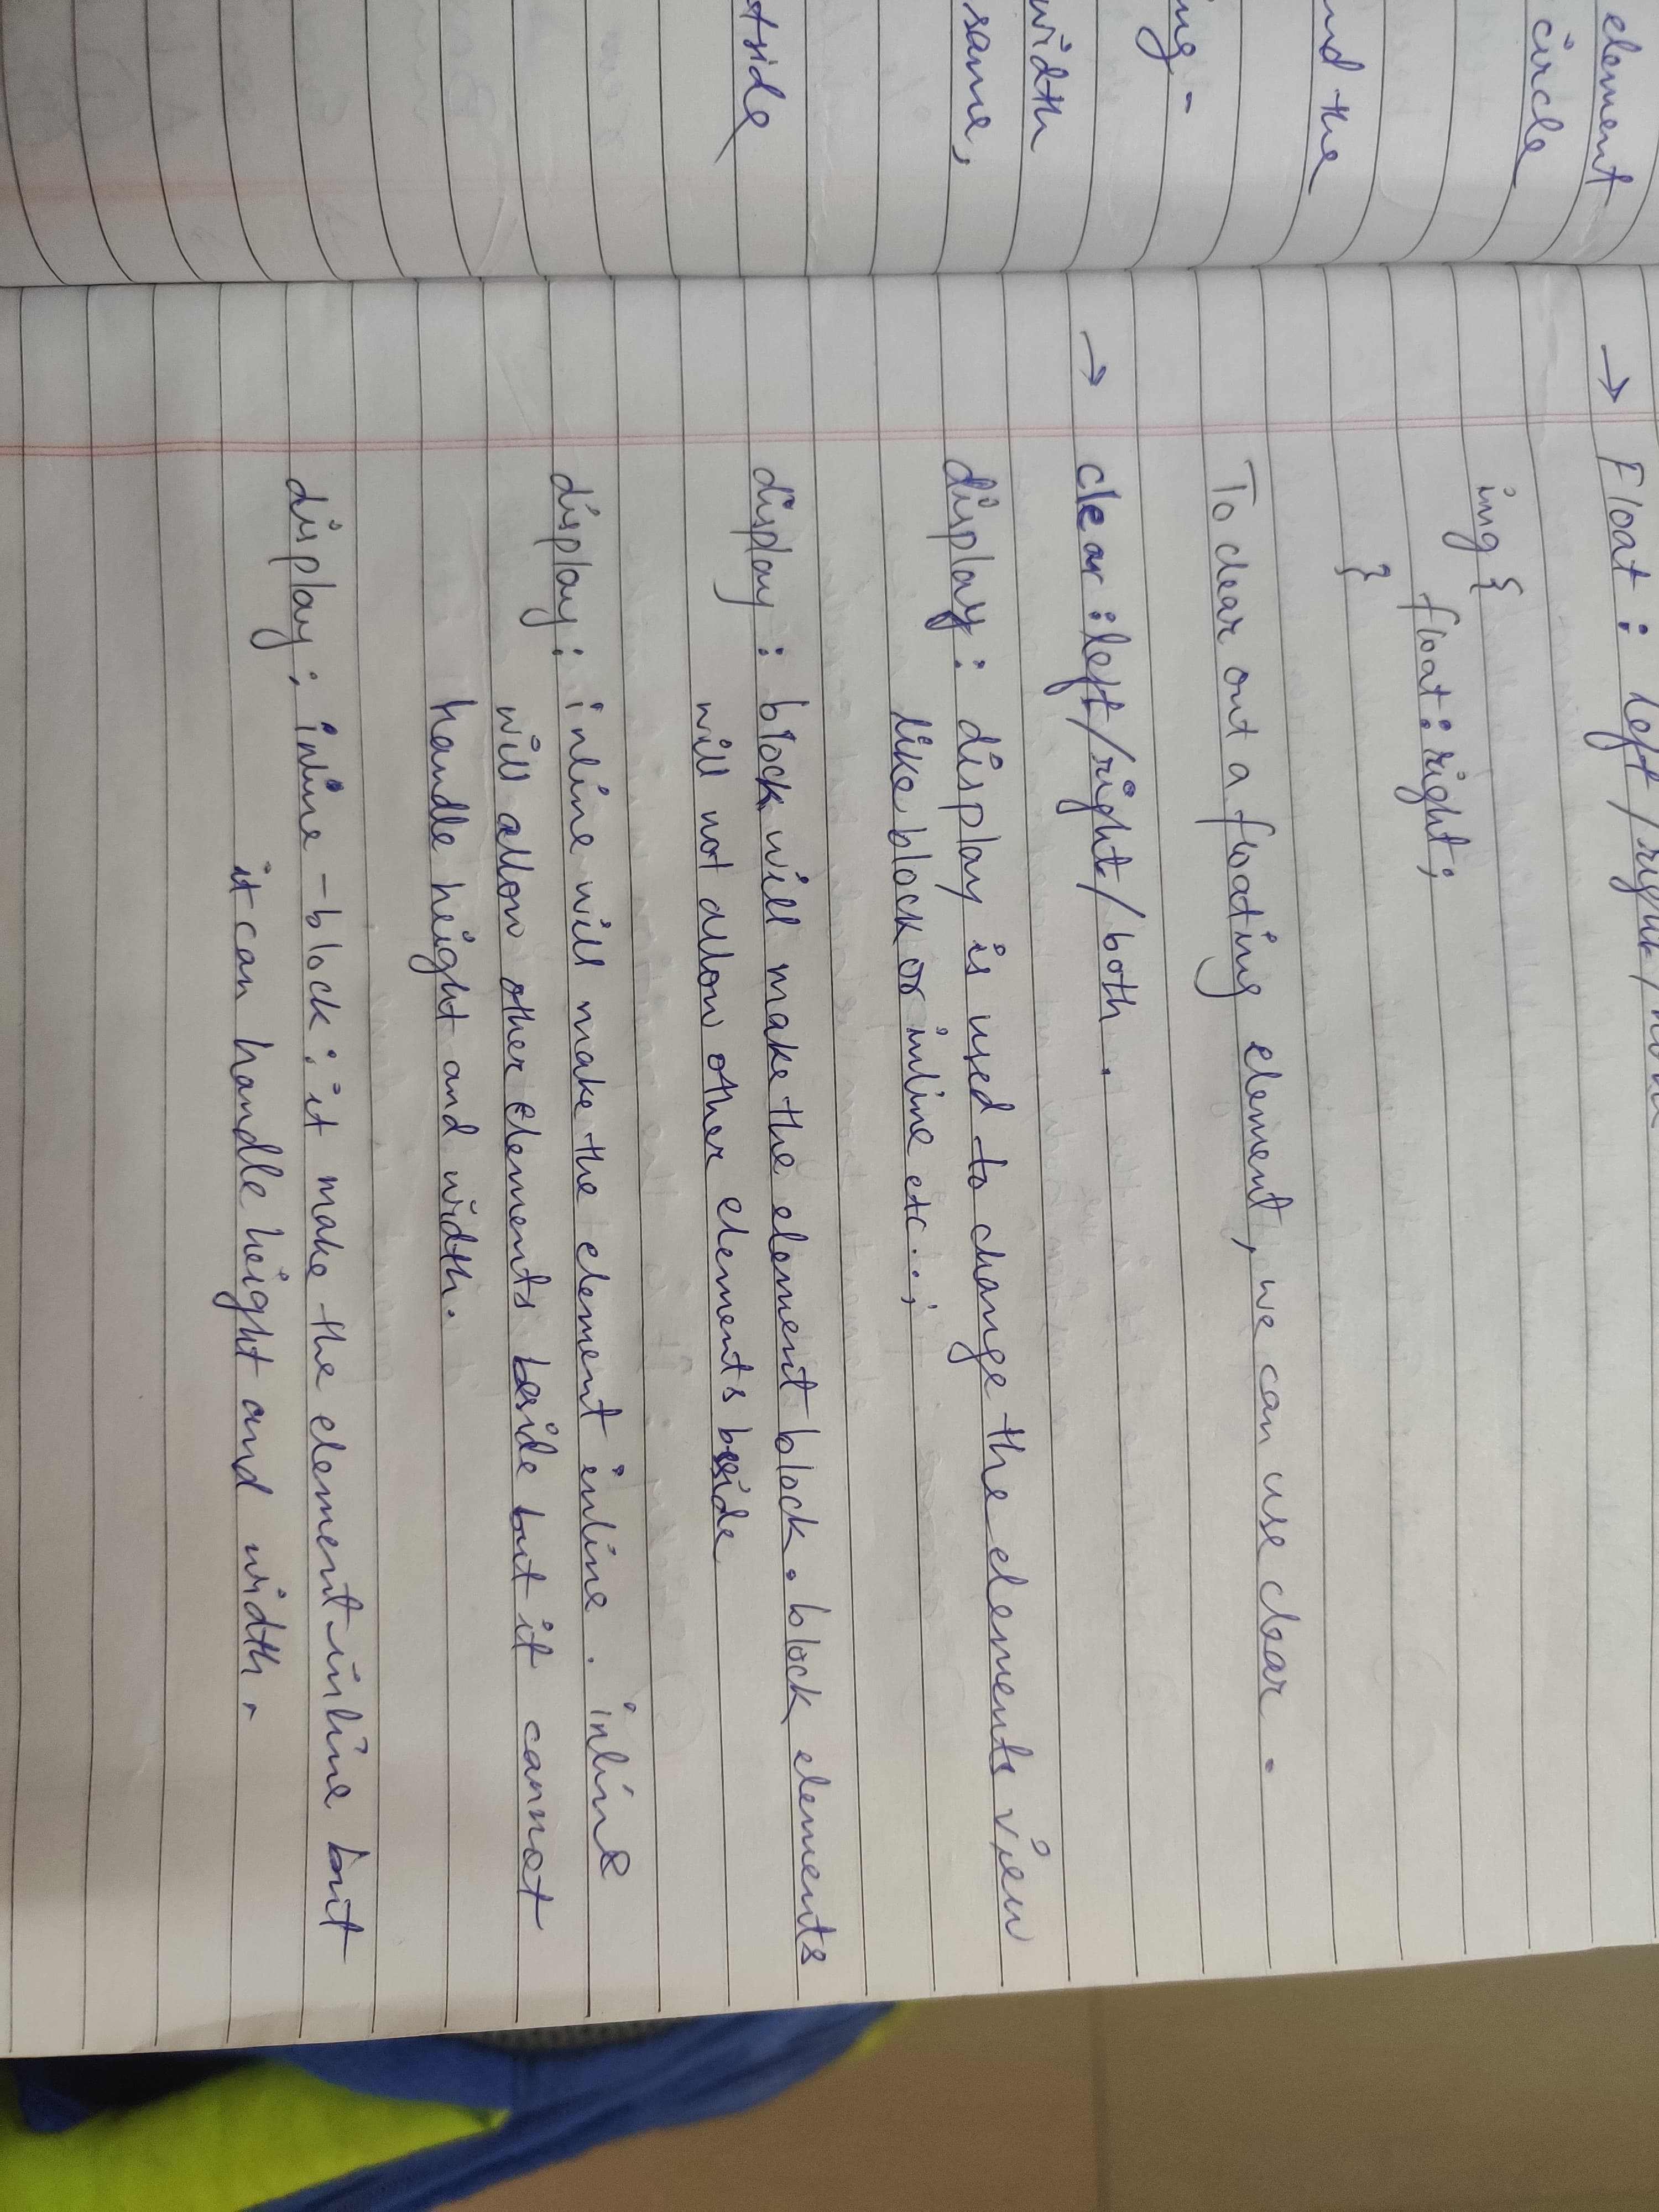 element
circle
the
width
same,
→ Float : left / right /
img {
float : right ;
}
To clear out a floating element, we can use clear .
→ clear : left / right / both .
display : display is used to change the elements view
like block or inline etc . . ;
display : block will make the element block . block elements
will not allow other elements beside
display : inline will make the element inline . inline
will allow other elements beside but it cannot
handle height and width .
display : inline - block : it make the element inline but
it can handle height and width .